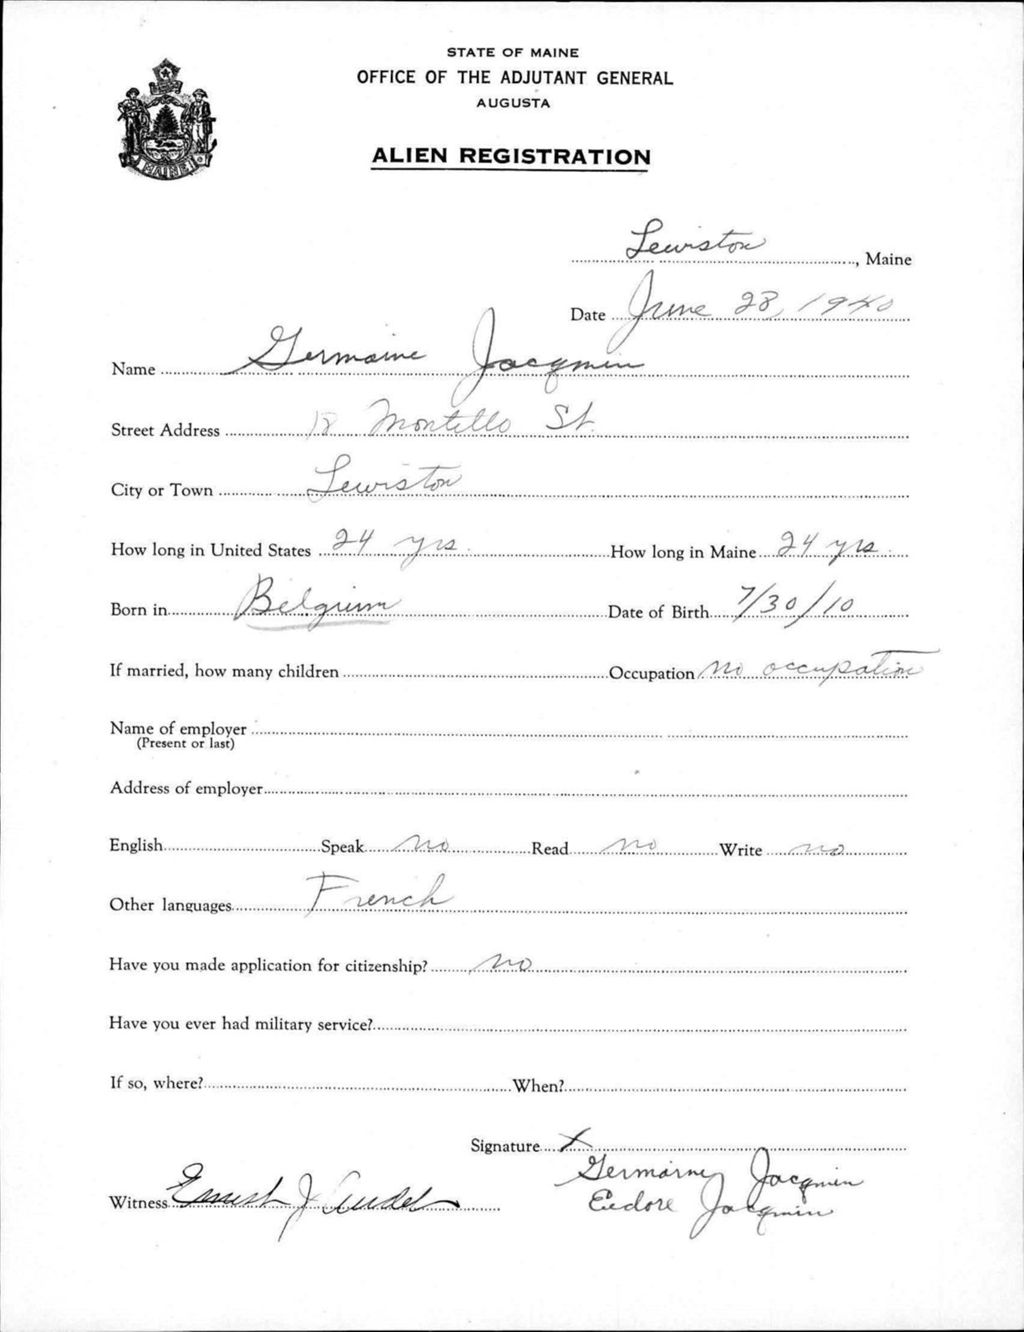 STATE OF MAINE
OFFICE OF THE ADJUTANT GENERAL
AUGUSTA
ALIEN REGISTRATION
MAINE
Lewiston, Maine
Date June 28, 1940
Name Germaine Jacqmin
Street Address 18 Montello St.
City or Town Lewiston
How long in United States 24 yrs. How long in Maine 24 yrs.
Born in Belgium Date of Birth 7/30/10
If married, how many children Occupation no occupation
Name of employer
(Present or last)
Address of employer
English Speak no Read no Write no
Other languages French
Have you made application for citizenship? no
Have you ever had military service?
If so, where? When?
Signature X
Germaine Jacqmin
Witness Ernest J. Eudore Jacqmin